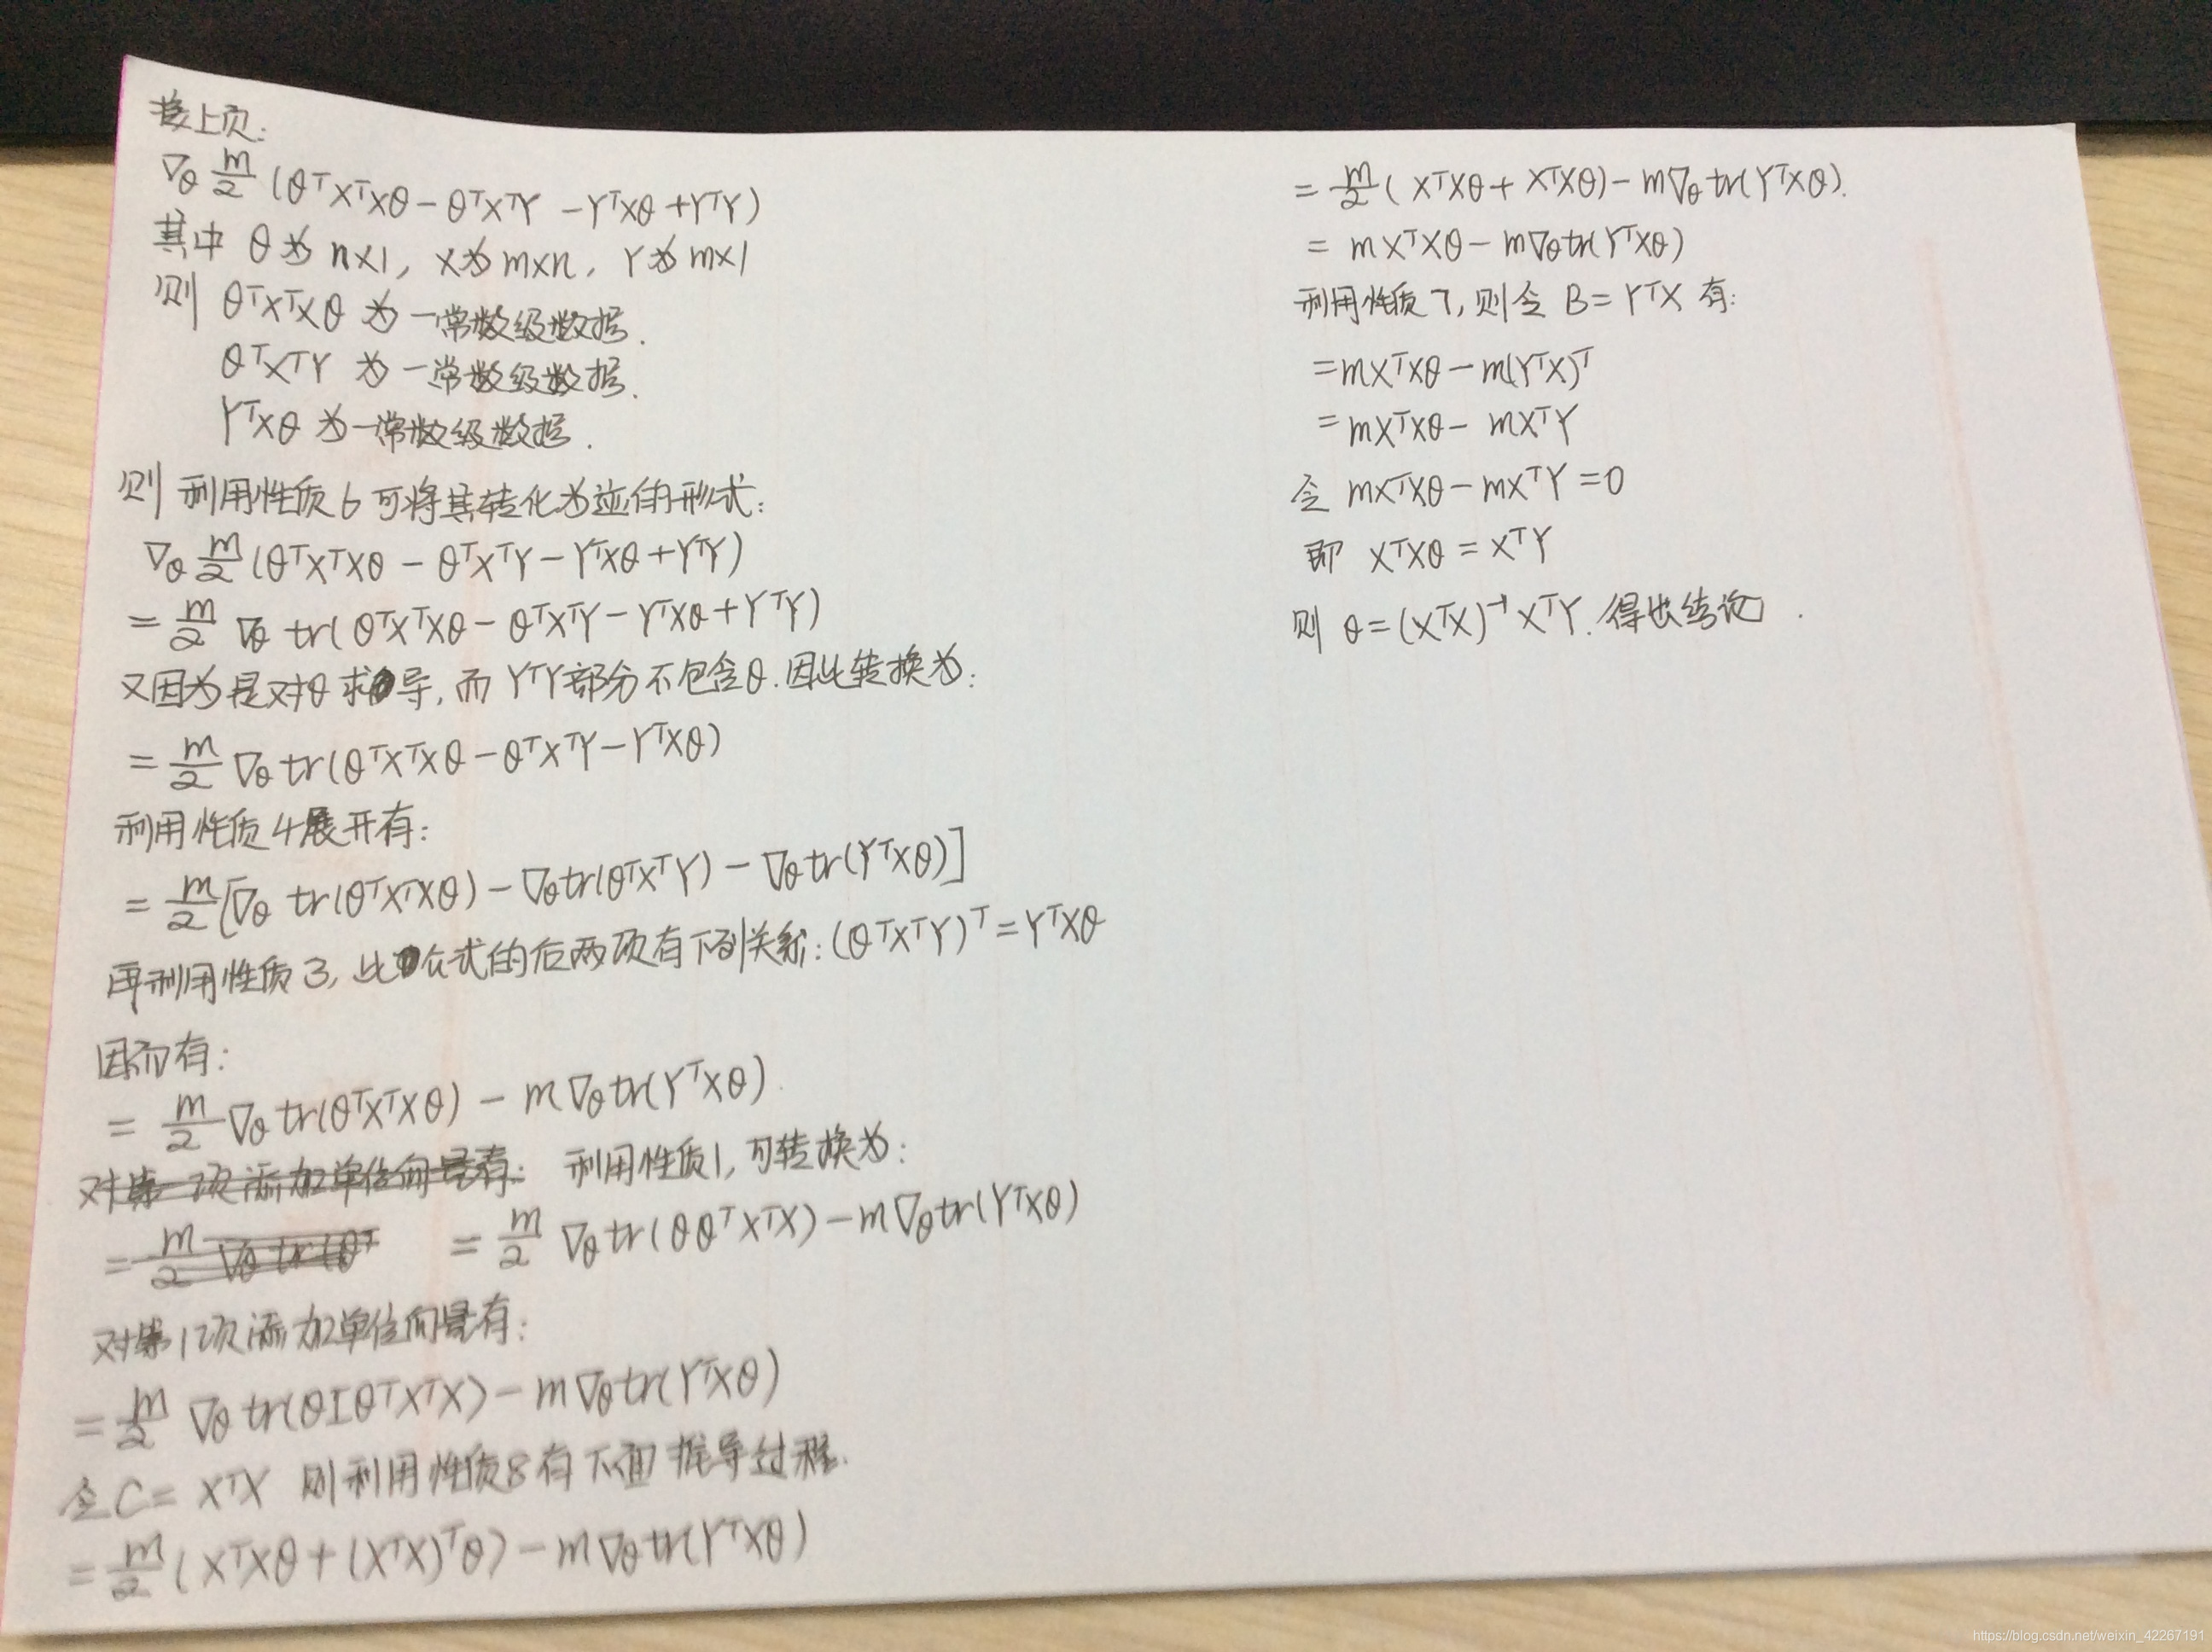 接上页:
∇θ m/2 (θᵀXᵀXθ - θᵀXᵀY - YᵀXθ + YᵀY)
其中 θ为 n×1, X为 m×n, Y为 m×1
则 θᵀXᵀXθ 为一常数级数据.
θᵀXᵀY 为一常数级数据.
YᵀXθ 为一常数级数据.
则 利用性质6可将其转化为迹的形式:
∇θ m/2 (θᵀXᵀXθ - θᵀXᵀY - YᵀXθ + YᵀY)
= m/2 ∇θ tr(θᵀXᵀXθ - θᵀXᵀY - YᵀXθ + YᵀY)
又因为是对θ求导, 而 YᵀY部分不包含θ. 因此转换为:
= m/2 ∇θ tr(θᵀXᵀXθ - θᵀXᵀY - YᵀXθ)
利用性质4展开有:
= m/2 [∇θ tr(θᵀXᵀXθ) - ∇θ tr(θᵀXᵀY) - ∇θ tr(YᵀXθ)]
再利用性质3, 此公式的后两项有下列关系: (θᵀXᵀY)ᵀ = YᵀXθ
因而有:
= m/2 ∇θ tr(θᵀXᵀXθ) - m∇θ tr(YᵀXθ).
对第一项添加单位向量有: 利用性质1, 可转换为:
= m/2 ∇θ tr(θᵀ = m/2 ∇θ tr(θθᵀXᵀX) - m∇θ tr(YᵀXθ)
对第1项添加单位向量有:
= m/2 ∇θ tr(θIθᵀXᵀX) - m∇θ tr(YᵀXθ)
令C = XᵀX 则利用性质8有下面推导过程.
= m/2 (XᵀXθ + (XᵀX)ᵀθ) - m∇θ tr(YᵀXθ)
= m/2 (XᵀXθ + XᵀXθ) - m∇θ tr(YᵀXθ).
= mXᵀXθ - m∇θ tr(YᵀXθ)
利用性质7, 则令 B = YᵀX 有:
= mXᵀXθ - m(YᵀX)ᵀ
= mXᵀXθ - mXᵀY
令 mXᵀXθ - mXᵀY = 0
即 XᵀXθ = XᵀY
则 θ = (XᵀX)⁻¹XᵀY. 得出结论.
https://blog.csdn.net/weixin_42267191